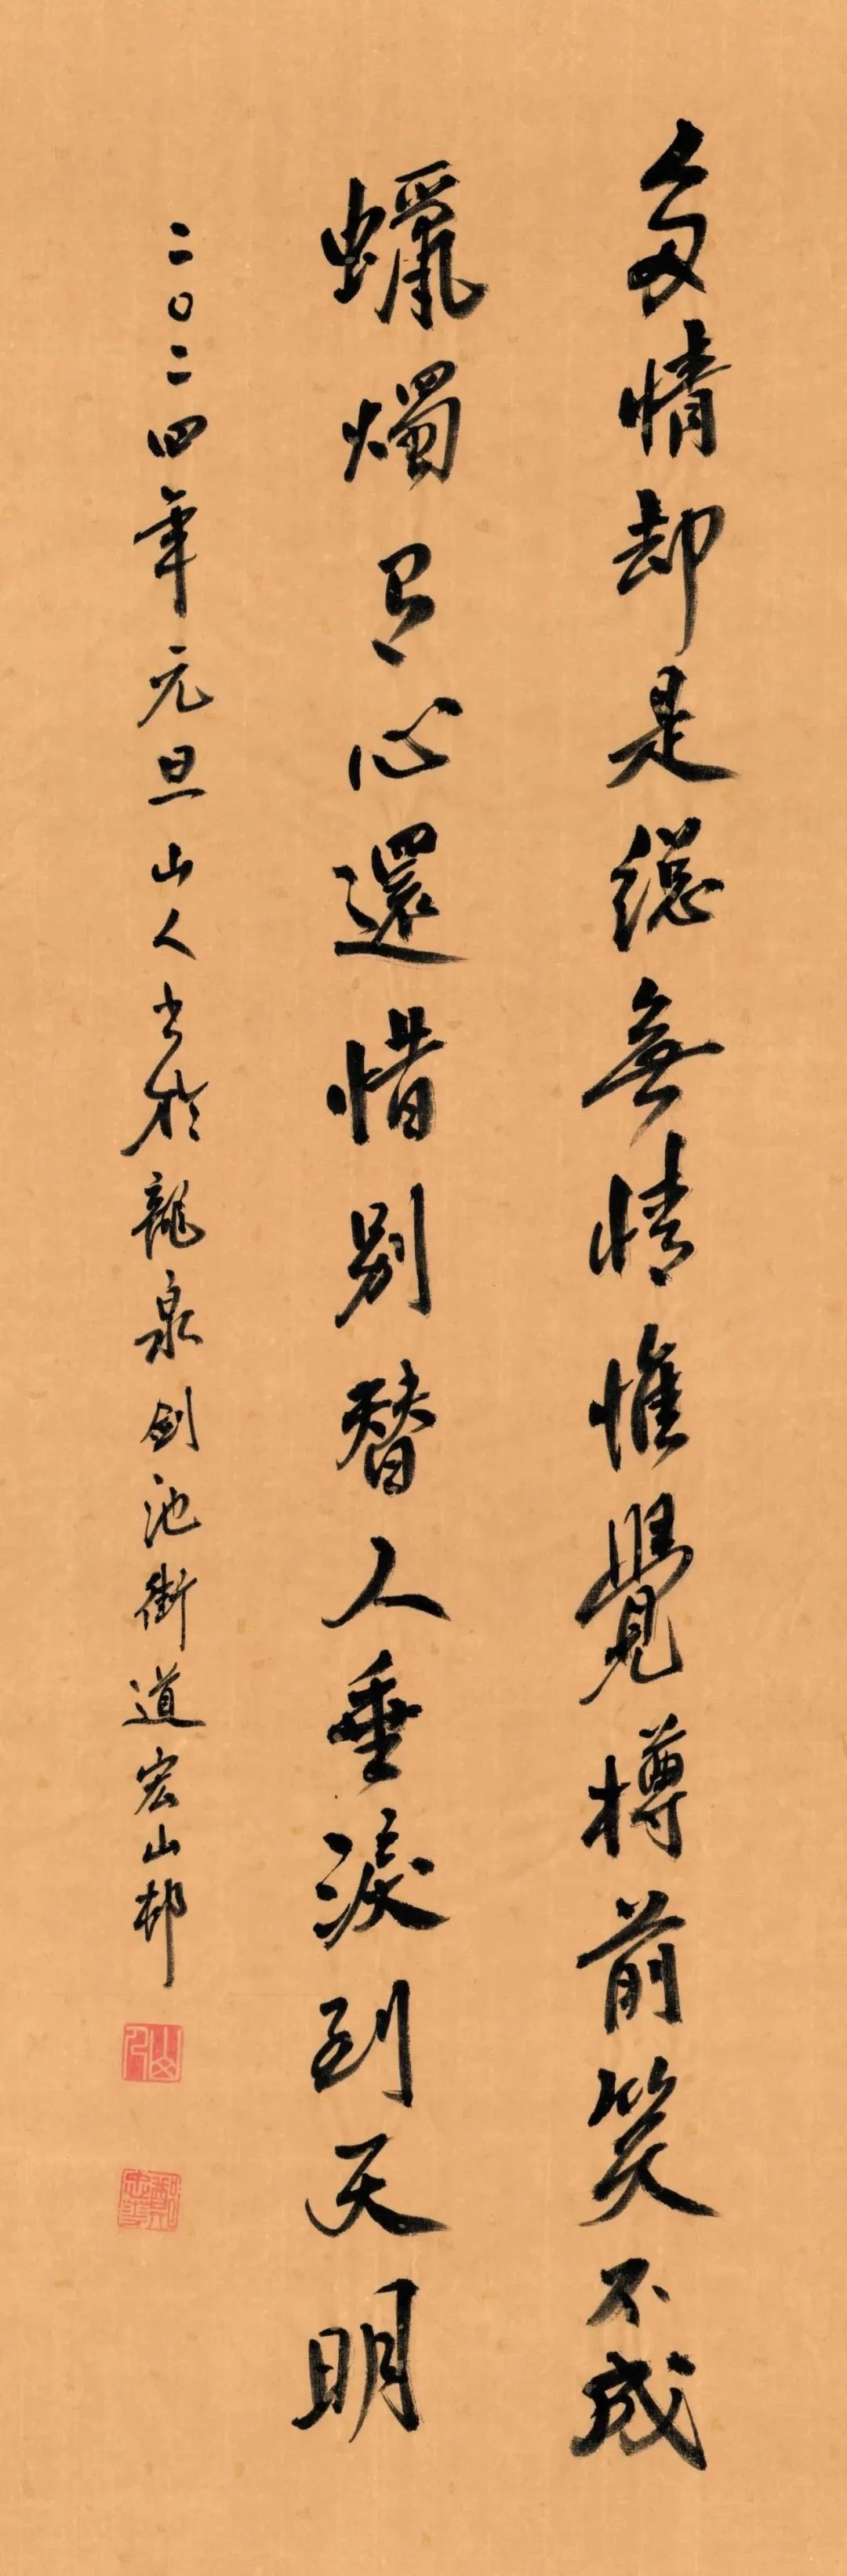 多情却是總無情惟覺樽前笑不成
蠟燭有心還惜別替人垂淚到天明
二〇二四年元旦山人書於龍泉劍池街道宏山邨
山人